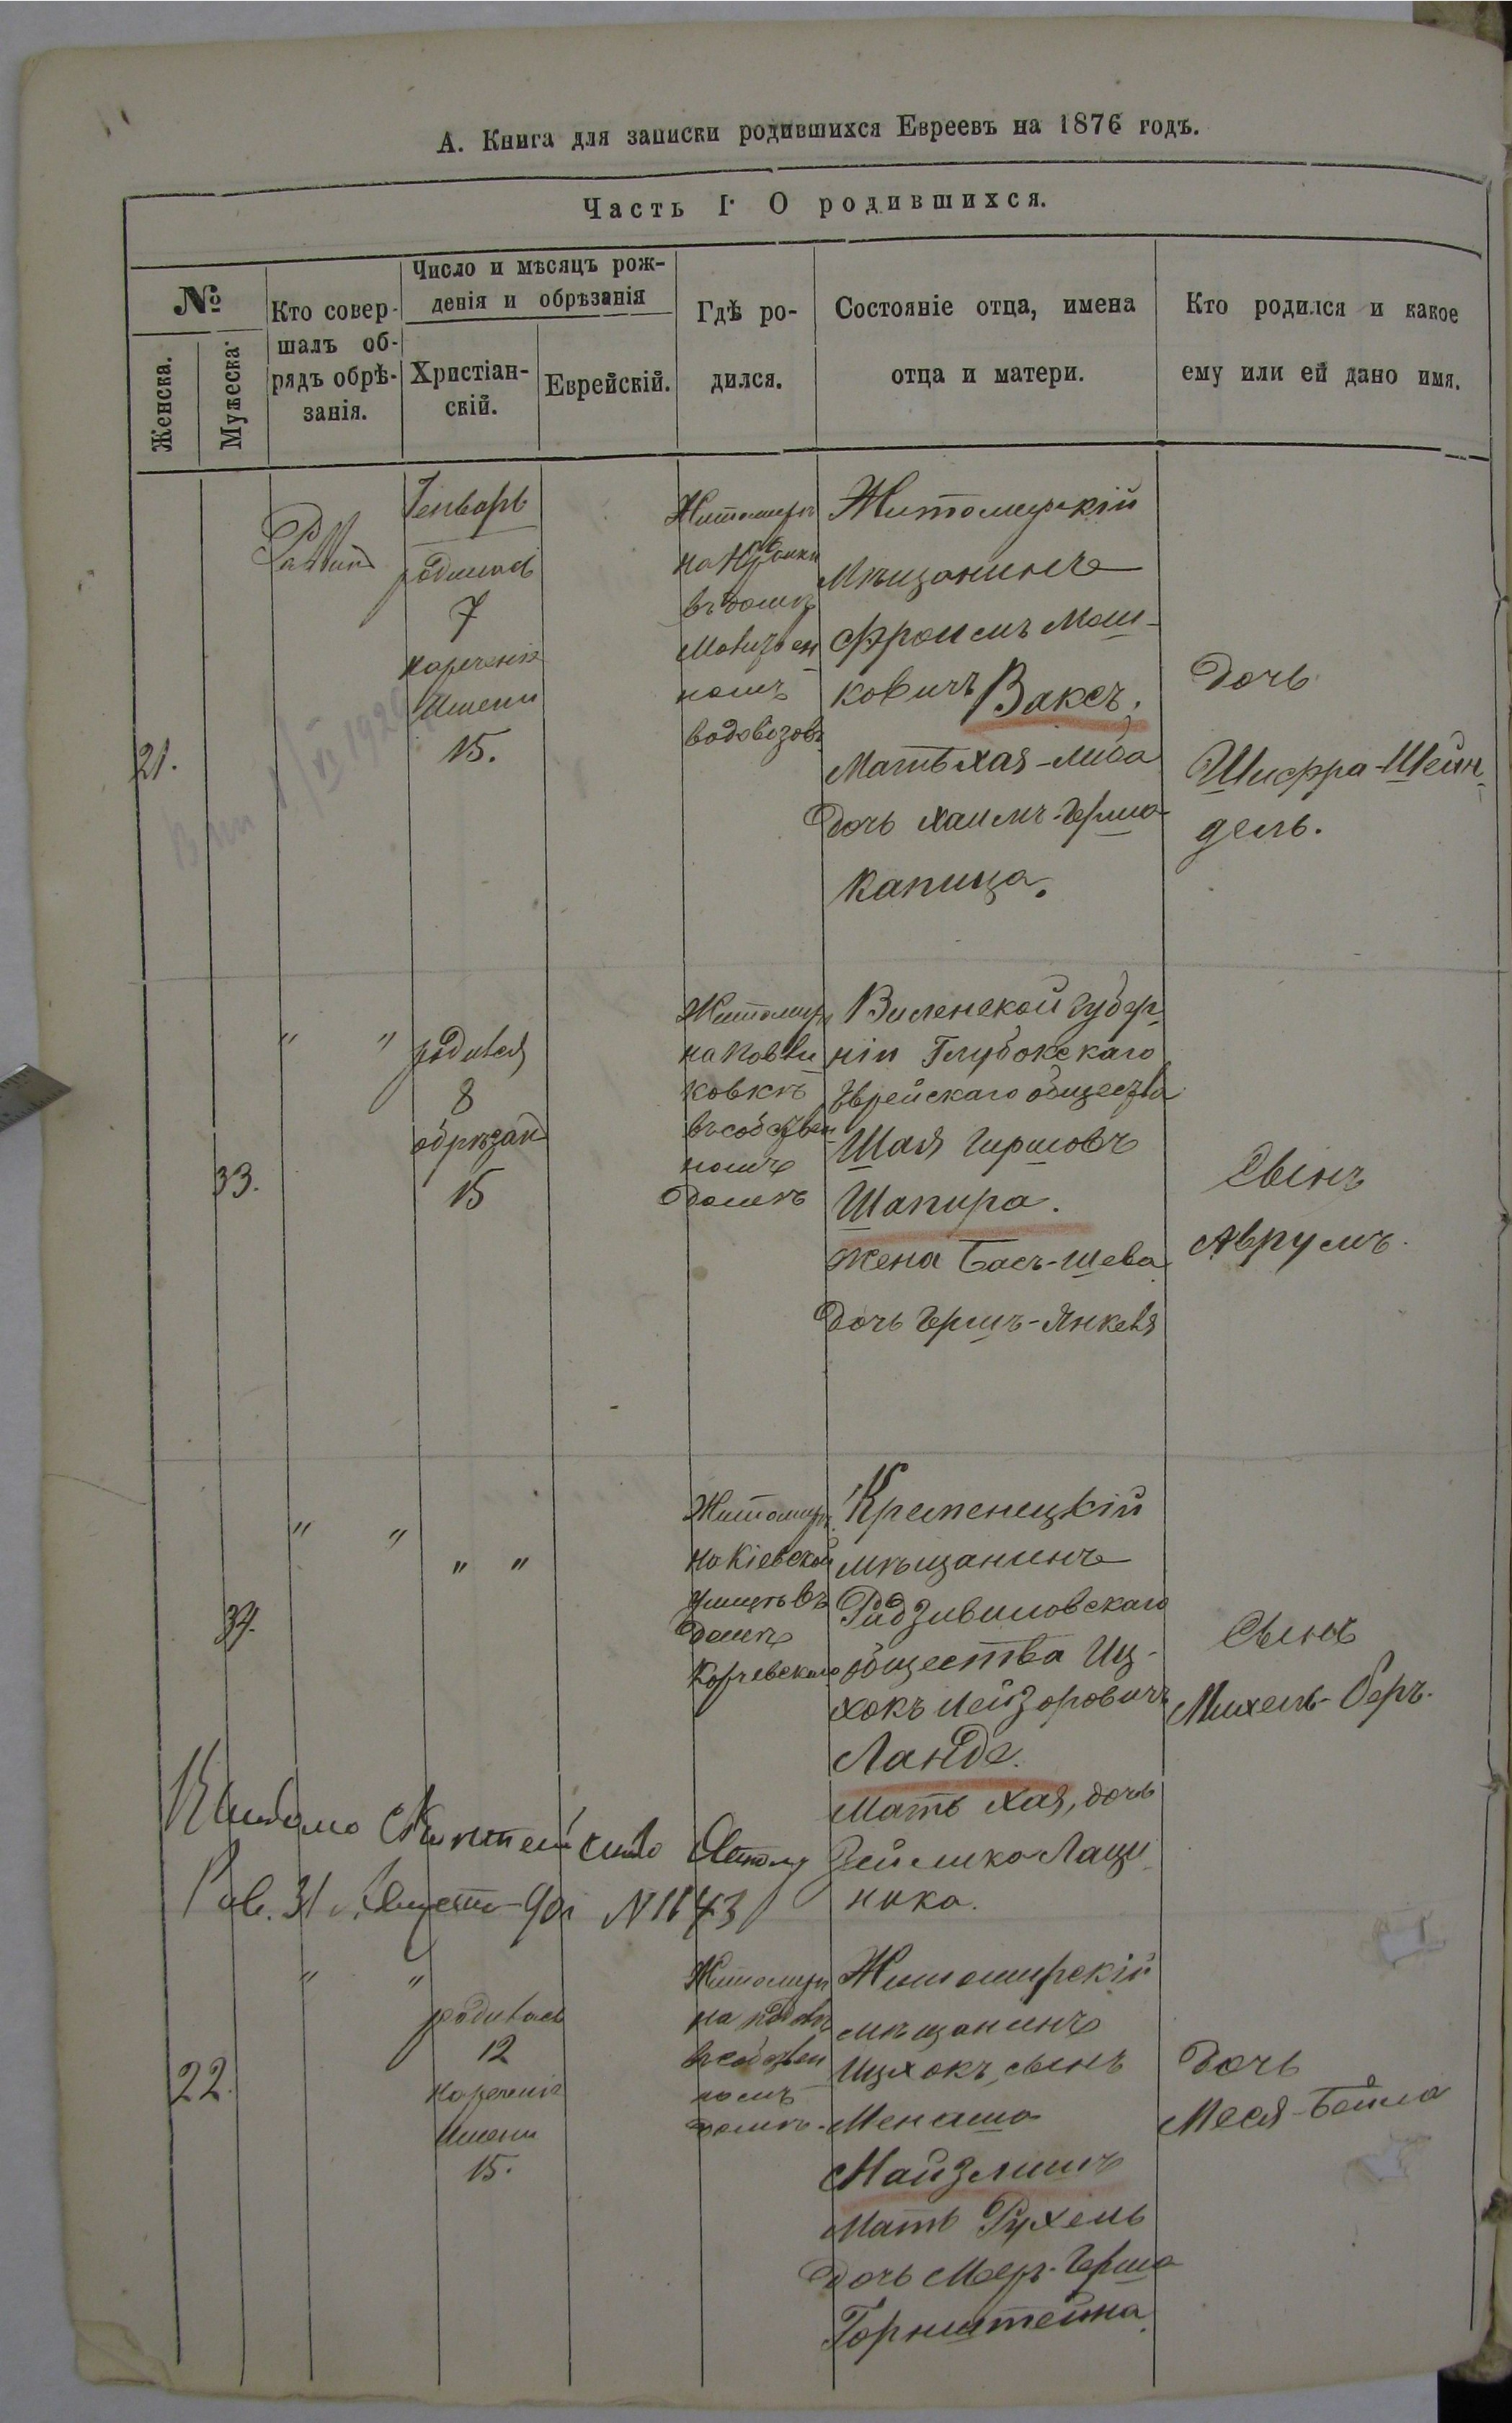 А. Книга для записки родившихся Евреевъ на 1876 годъ.
Часть I. О родившихся.
№
Женска.
Мужеска.
Кто совер-
шалъ об-
рядъ обрѣ-
занія.
Число и мѣсяцъ рож-
денія и обрѣзанія
Христіан-
скій.
Еврейскій.
Гдѣ ро-
дился.
Состояніе отца, имена
отца и матери.
Кто родился и какое
ему или ей дано имя.
21.
Раввинъ
Генварь
родилась
7
нареченіе
имени
15.
Житомиръ
въ домѣ
номъ
водовозовъ
Житомирскій
Мѣщанинъ
Фроимъ Мош-
ковичъ Ваксъ,
Мать Хая-Либа
дочь Хаимъ-Герша
Капица.
Дочь
Шифра-Шейн-
дель.
33.
" "
родился
8
обрѣзан
15
Житомиръ
ковкѣ
въ собствен
номъ
домѣ
Виленской губер-
ніи Глубокскаго
Еврейскаго общества
Шая Гиршовъ
Шапира.
жена Бась-Шева
дочь Гершъ-Янкеля
Сынъ
Аврумъ.
34.
" "
" "
Житомиръ
на Кіевской
улицѣ въ
домѣ
Корчевскаго
Кременецкій
мѣщанинъ
Радзивиловскаго
общества Иц-
хокъ Лейзоровичъ
Ланде.
Мать Хая, дочь
Зейлика Лащи-
ника.
Сынъ
Михель-Беръ.
Выдано
Рав. 31 Августа 90 г. N 1143
22.
" "
родилась
12
нареченіе
имени
15.
Житомиръ
на
въ собствен
номъ
домѣ.
Житомирскій
мѣщанинъ
Ицхокъ, сынъ
Менаша
Майзлишъ
Мать Рухель
дочь Меер-Герша
Горнштейна.
Дочь
Меся-Бейла